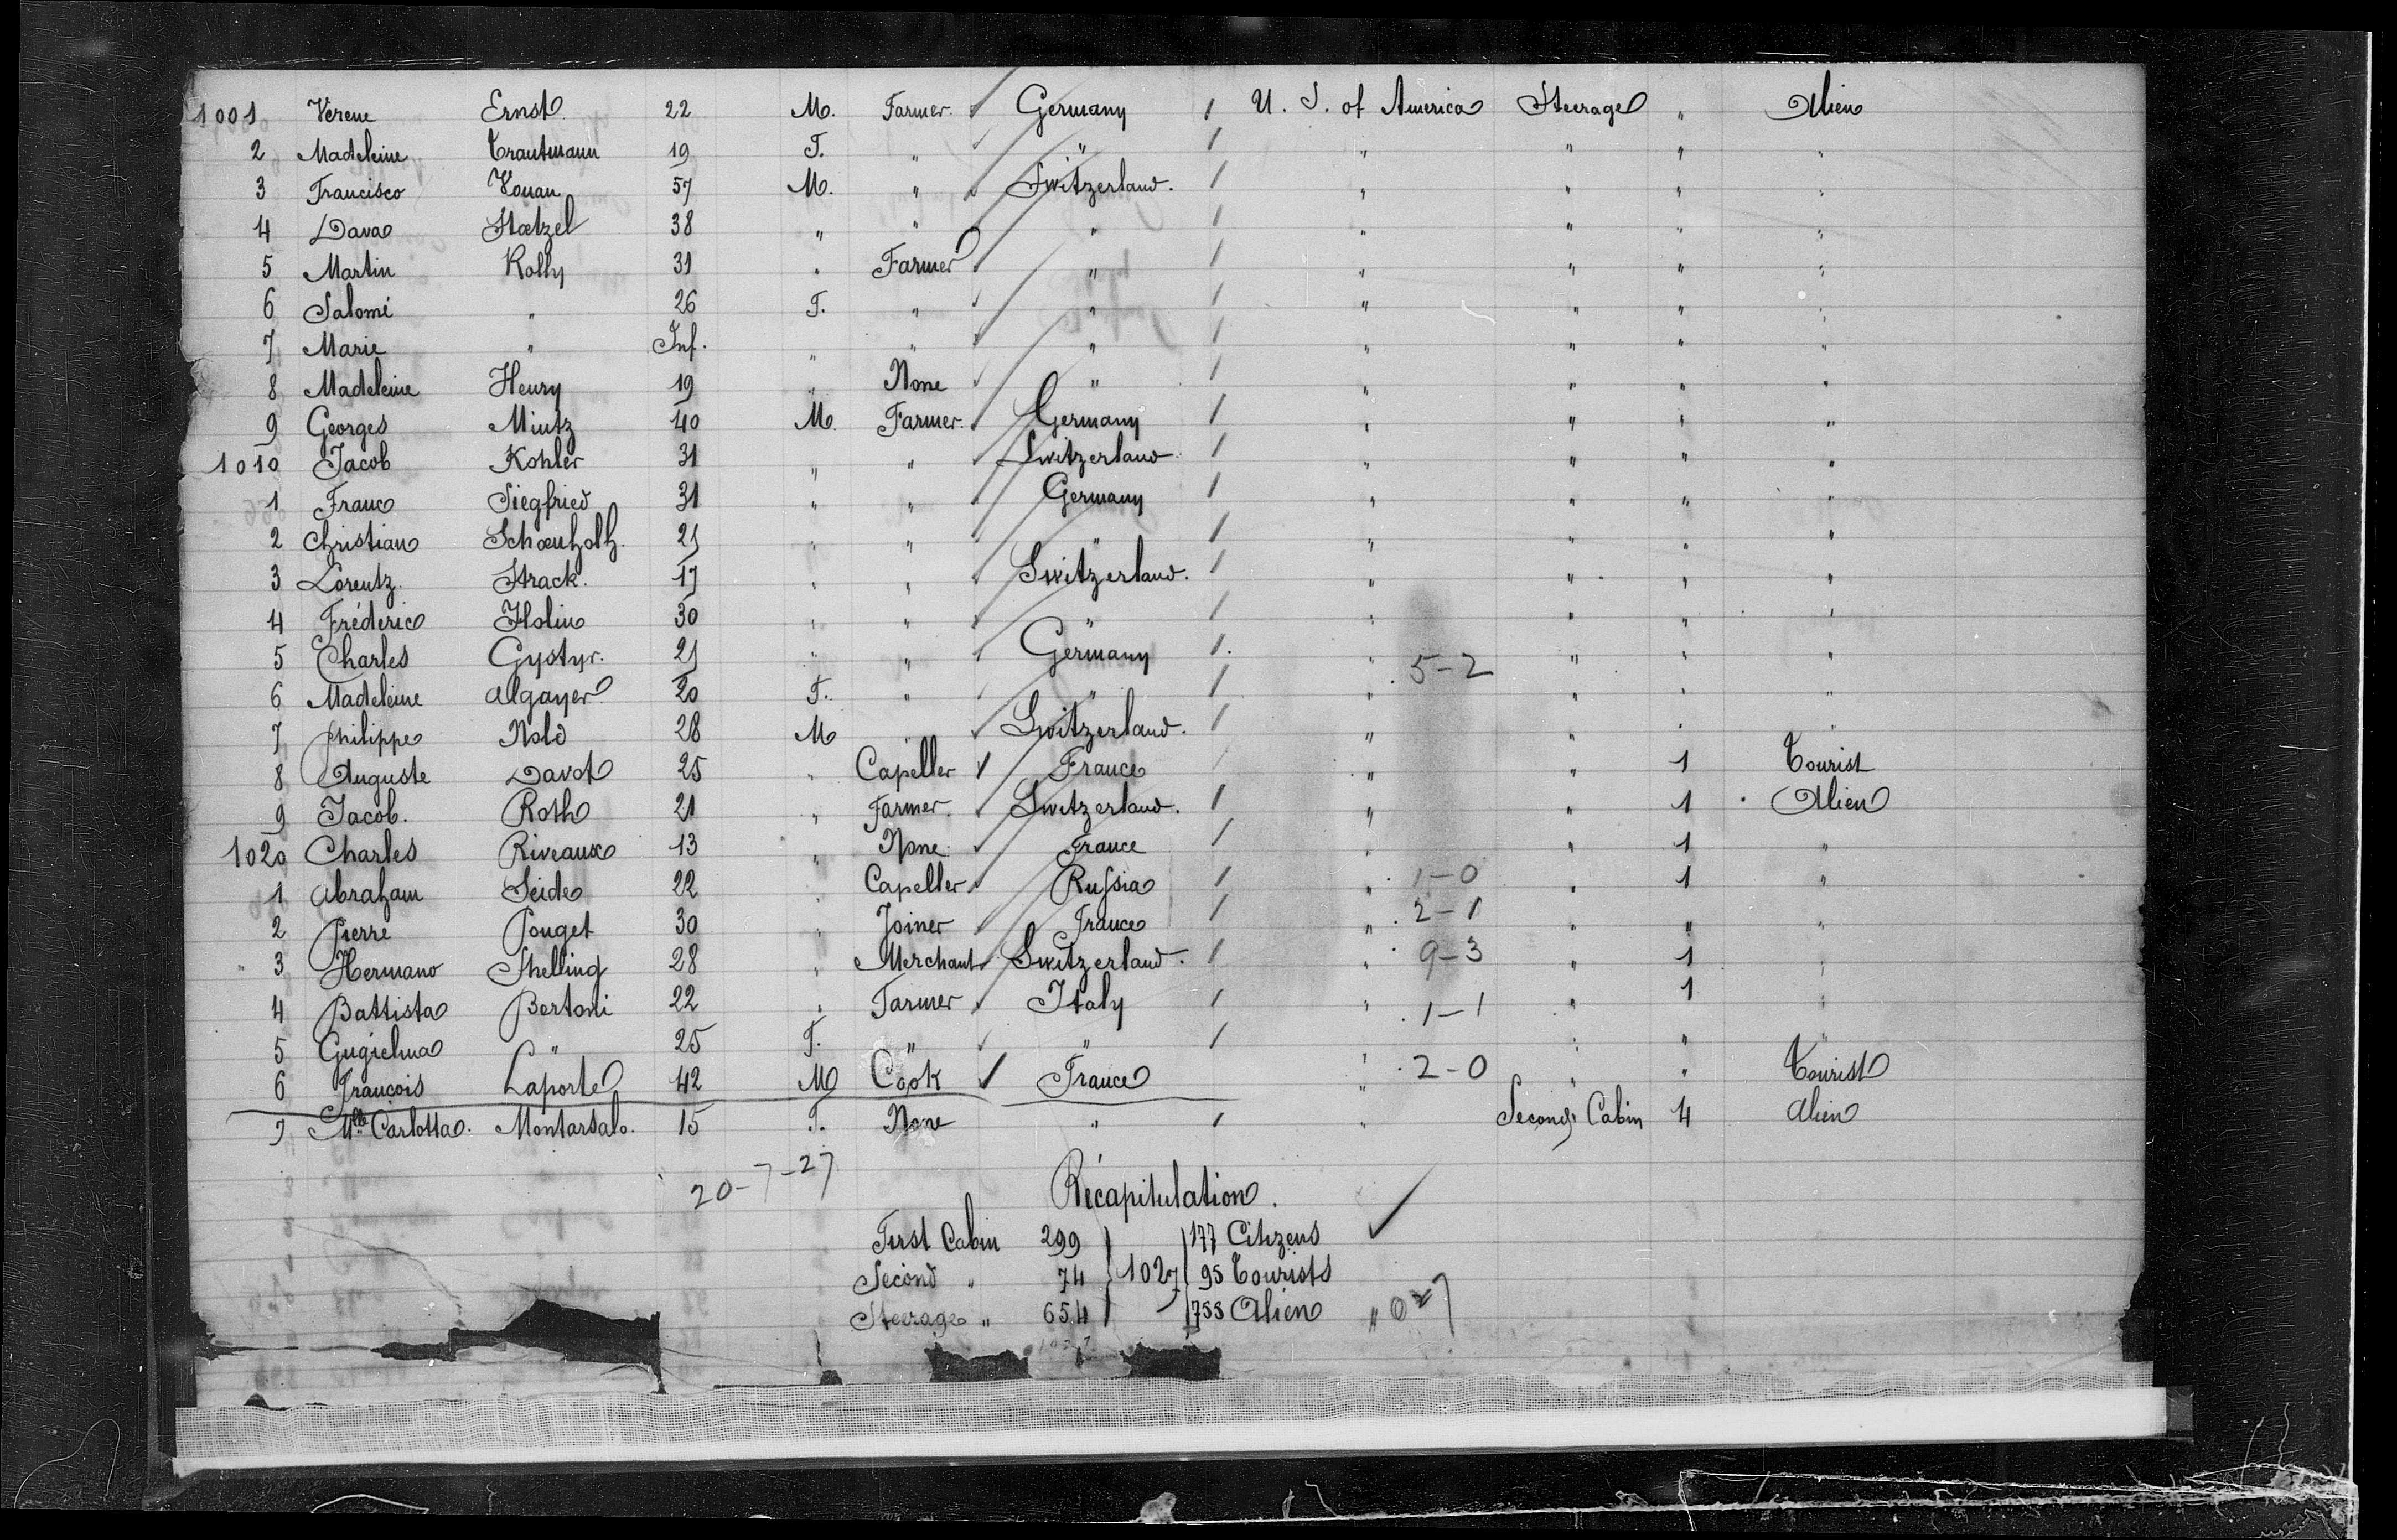 1001 Verene Ernst. 22 M. Farmer. Germany U. S. of America Steerage " Alien
2 Madeleine Trautmann 19 F. " " " " " "
3 Francisco Vouan 57 M. " Switzerland. " " " "
4 Dava Stoetzel 38 " " " " " " "
5 Martin Rolly 31 " Farmer " " " " "
6 Salomé " 26 F. " " " " " "
7 Marie " Inf. " " " " " " "
8 Madeleine Henry 19 " None " " " " "
9 Georges Mintz 40 M. Farmer. Germany " " " "
1010 Jacob Kohler 31 " " Switzerland " " " "
1 Franc Siegfried 31 " " Germany " " " "
2 Christian Schoenholh. 25 " " " " " " "
3 Lorentz. Strack. 17 " " Switzerland. " " " "
4 Fréderic Holin 30 " " " " " " "
5 Charles Gystyr. 25 " " Germany " 5-2 " " "
6 Madeleine Algayer 20 F. " " " " " "
7 Philippe Nold 28 M " Switzerland. " " " "
8 Auguste Davot 25 " Capeller France " " 1 Tourist
9 Jacob. Roth 21 " Farmer. Switzerland. " " 1 Alien
1020 Charles Riveaux 13 " None France " " 1 "
1 Abraham Seide 22 " Capeller Russia " 1-0 " 1 "
2 Pierre Pouget 30 " Joiner France " 2-1 " " "
3 Hermano Shelling 28 " Merchant Switzerland. " 9-3 " 1 "
4 Battista Bertoni 22 " Farmer Italy " 1-1 " 1 "
5 Gugielma " 25 F. " " " " " "
6 François Laporte 42 M Cook France " 2-0 " " Tourist
7 Mlle Carlotta. Montarsalo. 15 F. None " " Second Cabin 4 Alien
20-7-27
Récapitulation.
First Cabin 299 177 Citizens
Second " 74 1027 95 Tourists
Steerage " 654 755 Alien